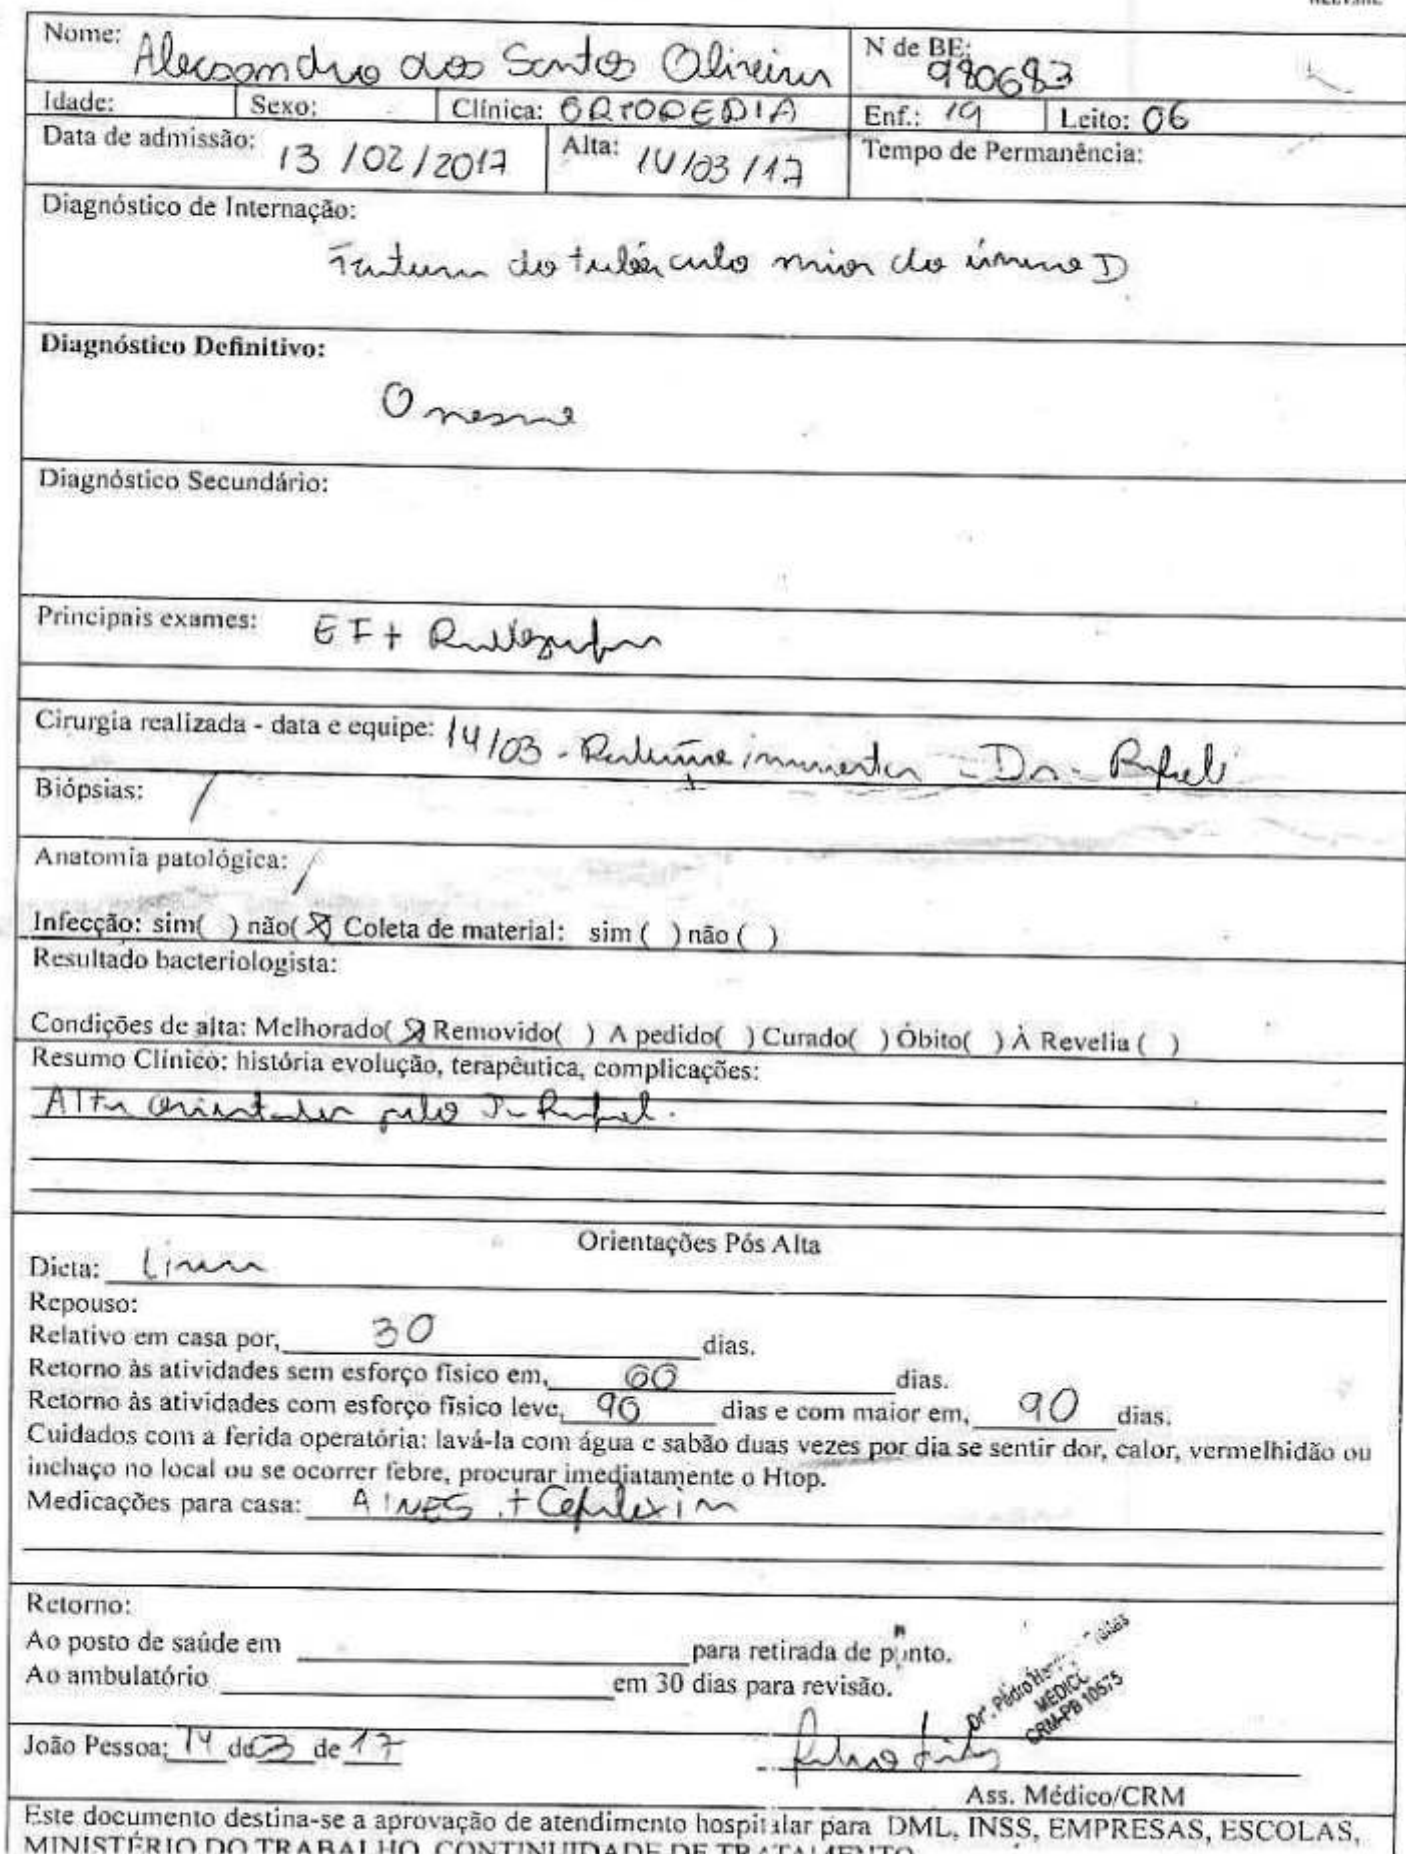 Nome: Alecsandro dos Santos Oliveira
N de BE: 980683
Idade: Sexo: Clínica: ORTOPEDIA Enf.: 19 Leito: 06
Data de admissão: 13/02/2017 Alta: 14/03/17 Tempo de Permanência:
Diagnóstico de Internação:
Fratura do tubérculo maior do úmero D
Diagnóstico Definitivo:
O mesmo
Diagnóstico Secundário:
Principais exames: EF + Radiografia
Cirurgia realizada - data e equipe: 14/03 - Dr. Rafael
Biópsias: /
Anatomia patológica: /
Infecção: sim( ) não(X) Coleta de material: sim ( ) não ( )
Resultado bacteriologista:
Condições de alta: Melhorado(X) Removido( ) A pedido( ) Curado( ) Óbito( ) À Revelia ( )
Resumo Clínico: história evolução, terapêutica, complicações:
Alta orientada pelo Dr Rafael.
Orientações Pós Alta
Dieta: Livre
Repouso:
Relativo em casa por, 30 dias.
Retorno às atividades sem esforço físico em, 60 dias.
Retorno às atividades com esforço físico leve, 90 dias e com maior em, 90 dias.
Cuidados com a ferida operatória: lavá-la com água e sabão duas vezes por dia se sentir dor, calor, vermelhidão ou
inchaço no local ou se ocorrer febre, procurar imediatamente o Htop.
Medicações para casa: AINES + Cefalexina
Retorno:
Ao posto de saúde em para retirada de ponto.
Ao ambulatório em 30 dias para revisão.
Dr. Pedro
MÉDICO
CRM-PB 10575
João Pessoa; 14 de 03 de 17
Ass. Médico/CRM
Este documento destina-se a aprovação de atendimento hospitalar para DML, INSS, EMPRESAS, ESCOLAS,
MINISTÉRIO DO TRABALHO, CONTINUIDADE DE TRATAMENTO